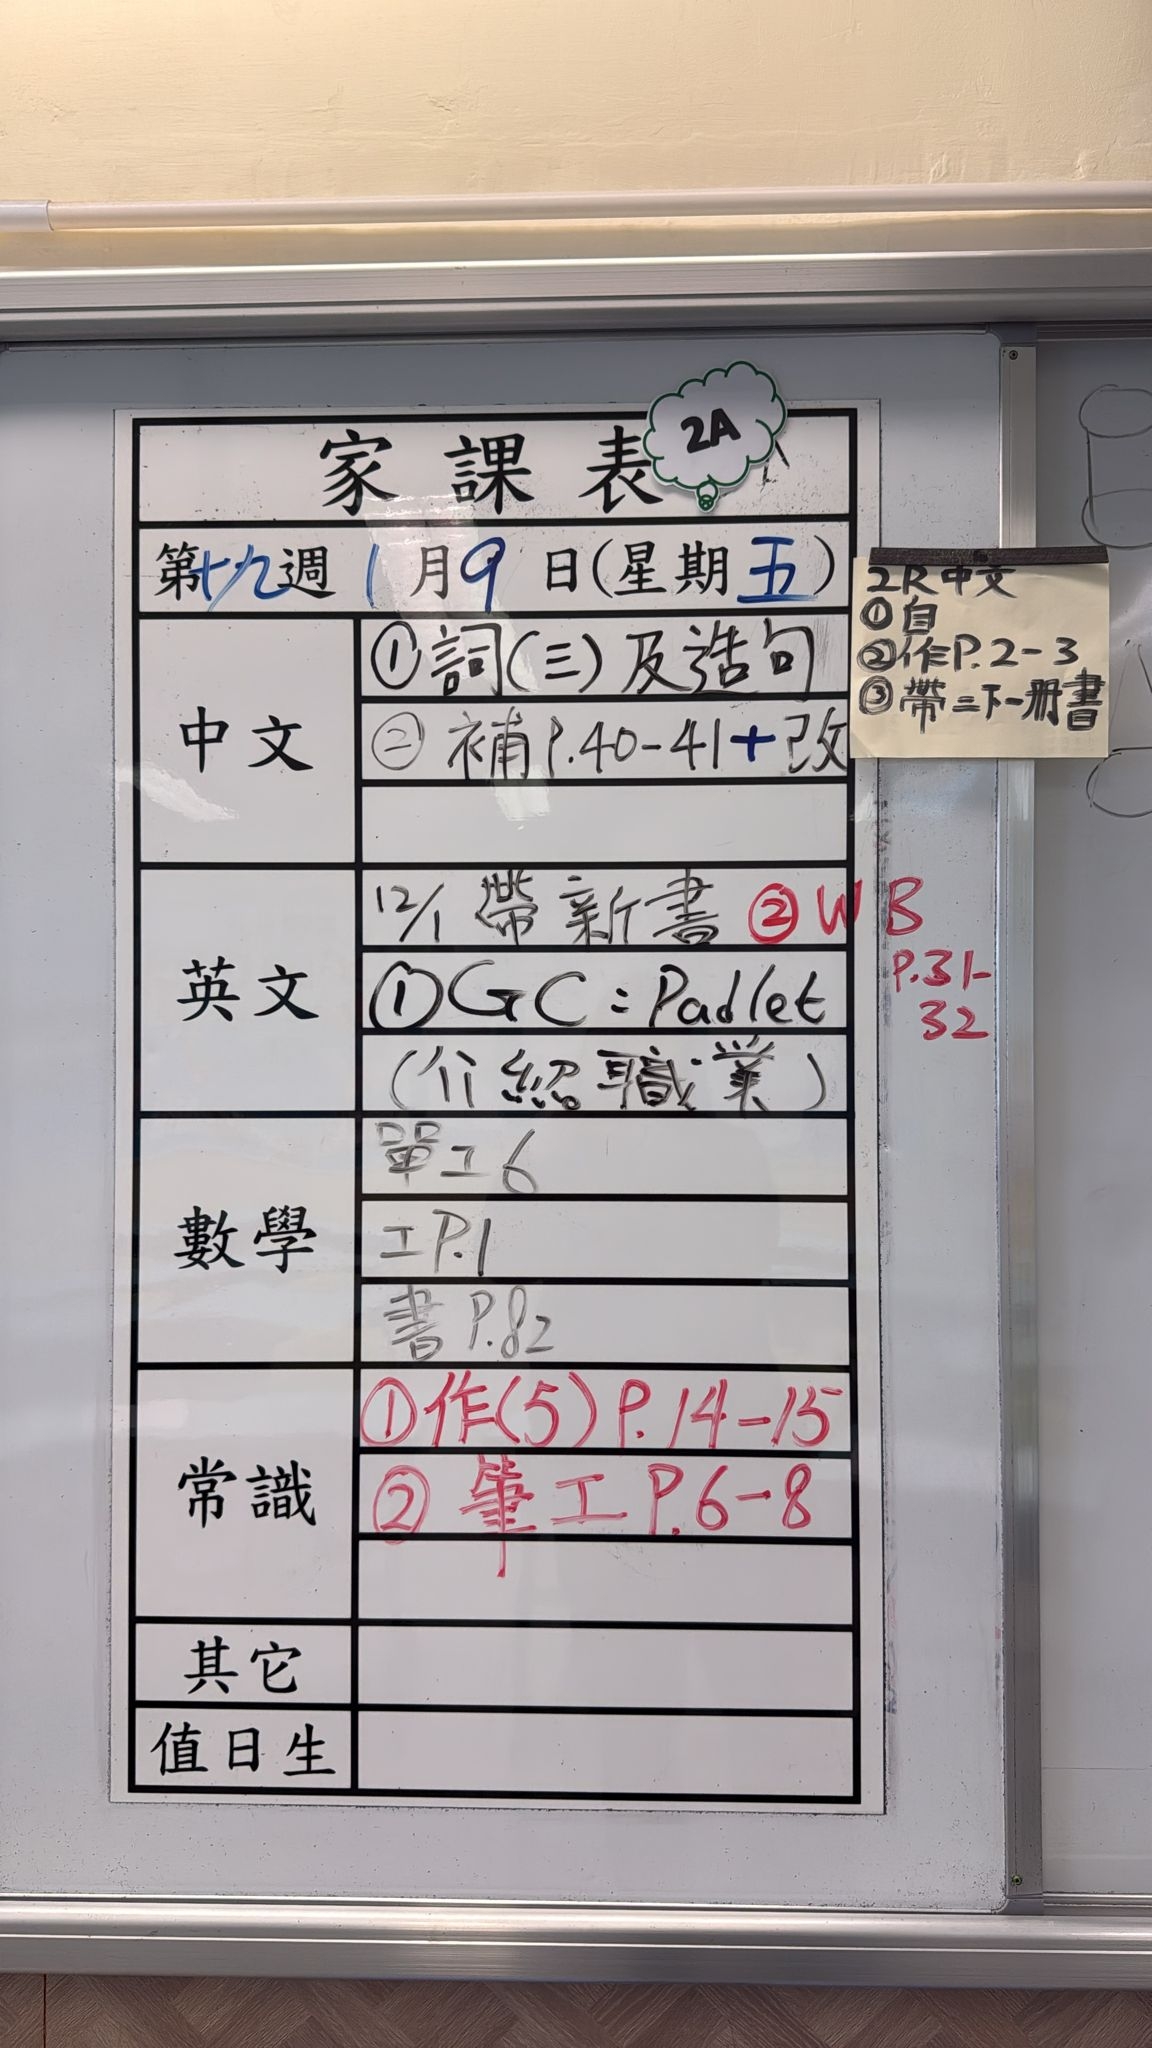 家課表
2A
第十九週 1月9日(星期五)
中文
①詞(三)及造句
②補P.40-41+改
2R中文
①自
②作P.2-3
③帶二下一冊書
英文
12/1 帶新書 ②WB
P.31-
32
①GC:Padlet
(介紹職業)
數學
單工6
工P.1
書P.82
常識
①作(5)P.14-15
②筆工P.6-8
其它
值日生